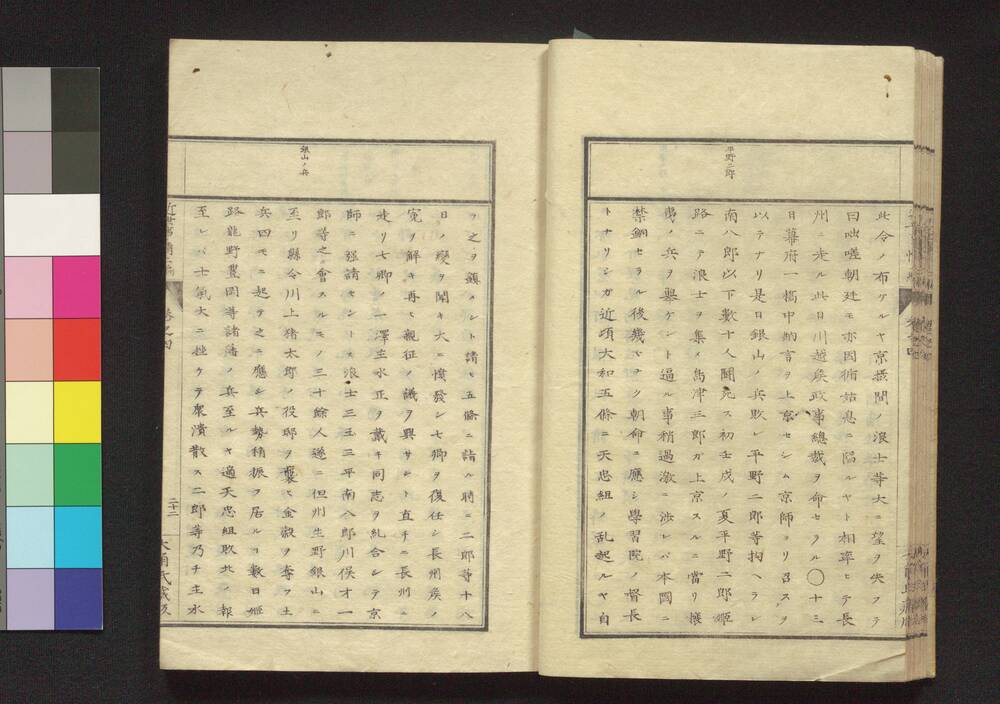 平野二郎
此令ノ布ケルヤ京摂間ノ浪士等大ニ望ヲ失フテ
曰咄嗟朝廷モ亦因循姑息ニ陥ルヤト相率ヒテ長
州ニ走ル此日川越侯政事總裁ヲ命セラル○十三
日幕府一橋中納言ヲ上京セシム京師ヨリ召スヲ
以テナリ是日銀山ノ兵敗レ平野二郎等拘ヘラレ
南八郎以下數十人鬪死ス初壬戌ノ夏平野二郎姫
路ニテ浪士ヲ集メ島津三郎ガ上京スルニ當リ攘
夷ノ兵ヲ擧ゲント逼ル事稍過激ニ渉レバ本國ニ
禁錮セラル後幾モナク朝命ニ應シ學習院ノ督長
トナリシガ近頃大和五條ニ天忠組ノ乱起ルヤ自
銀山ノ兵
ラ之ヲ鎮メント請ヒ五條ニ詣ル時ニ二郎等十八
日ノ變ヲ聞キ大ニ憤發シ七卿ヲ復任シ長州侯ノ
冤ヲ解キ再ヒ親征ノ議ヲ興サント直チニ長州ニ
走リ七卿ノ一澤主水正ヲ戴キ同志ヲ糺合シテ京
師ニ强請セントス浪士三玉三平南八郎川俣才一
郎等之ニ會スルモノ三十餘人遂ニ但州生野銀山ニ
至リ縣令川上猪太郎ノ役邸ヲ襲ヒ金穀ヲ奪フ土
兵四モニ起テ之ニ應シ兵勢稍振フ居ルコ數日姫
路龍野豊岡等諸藩ノ兵至ルヤ適天忠組敗北ノ報
至レバ士氣大ニ挫ケテ衆潰散ス二郎等乃チ主水
卷之四
二十二